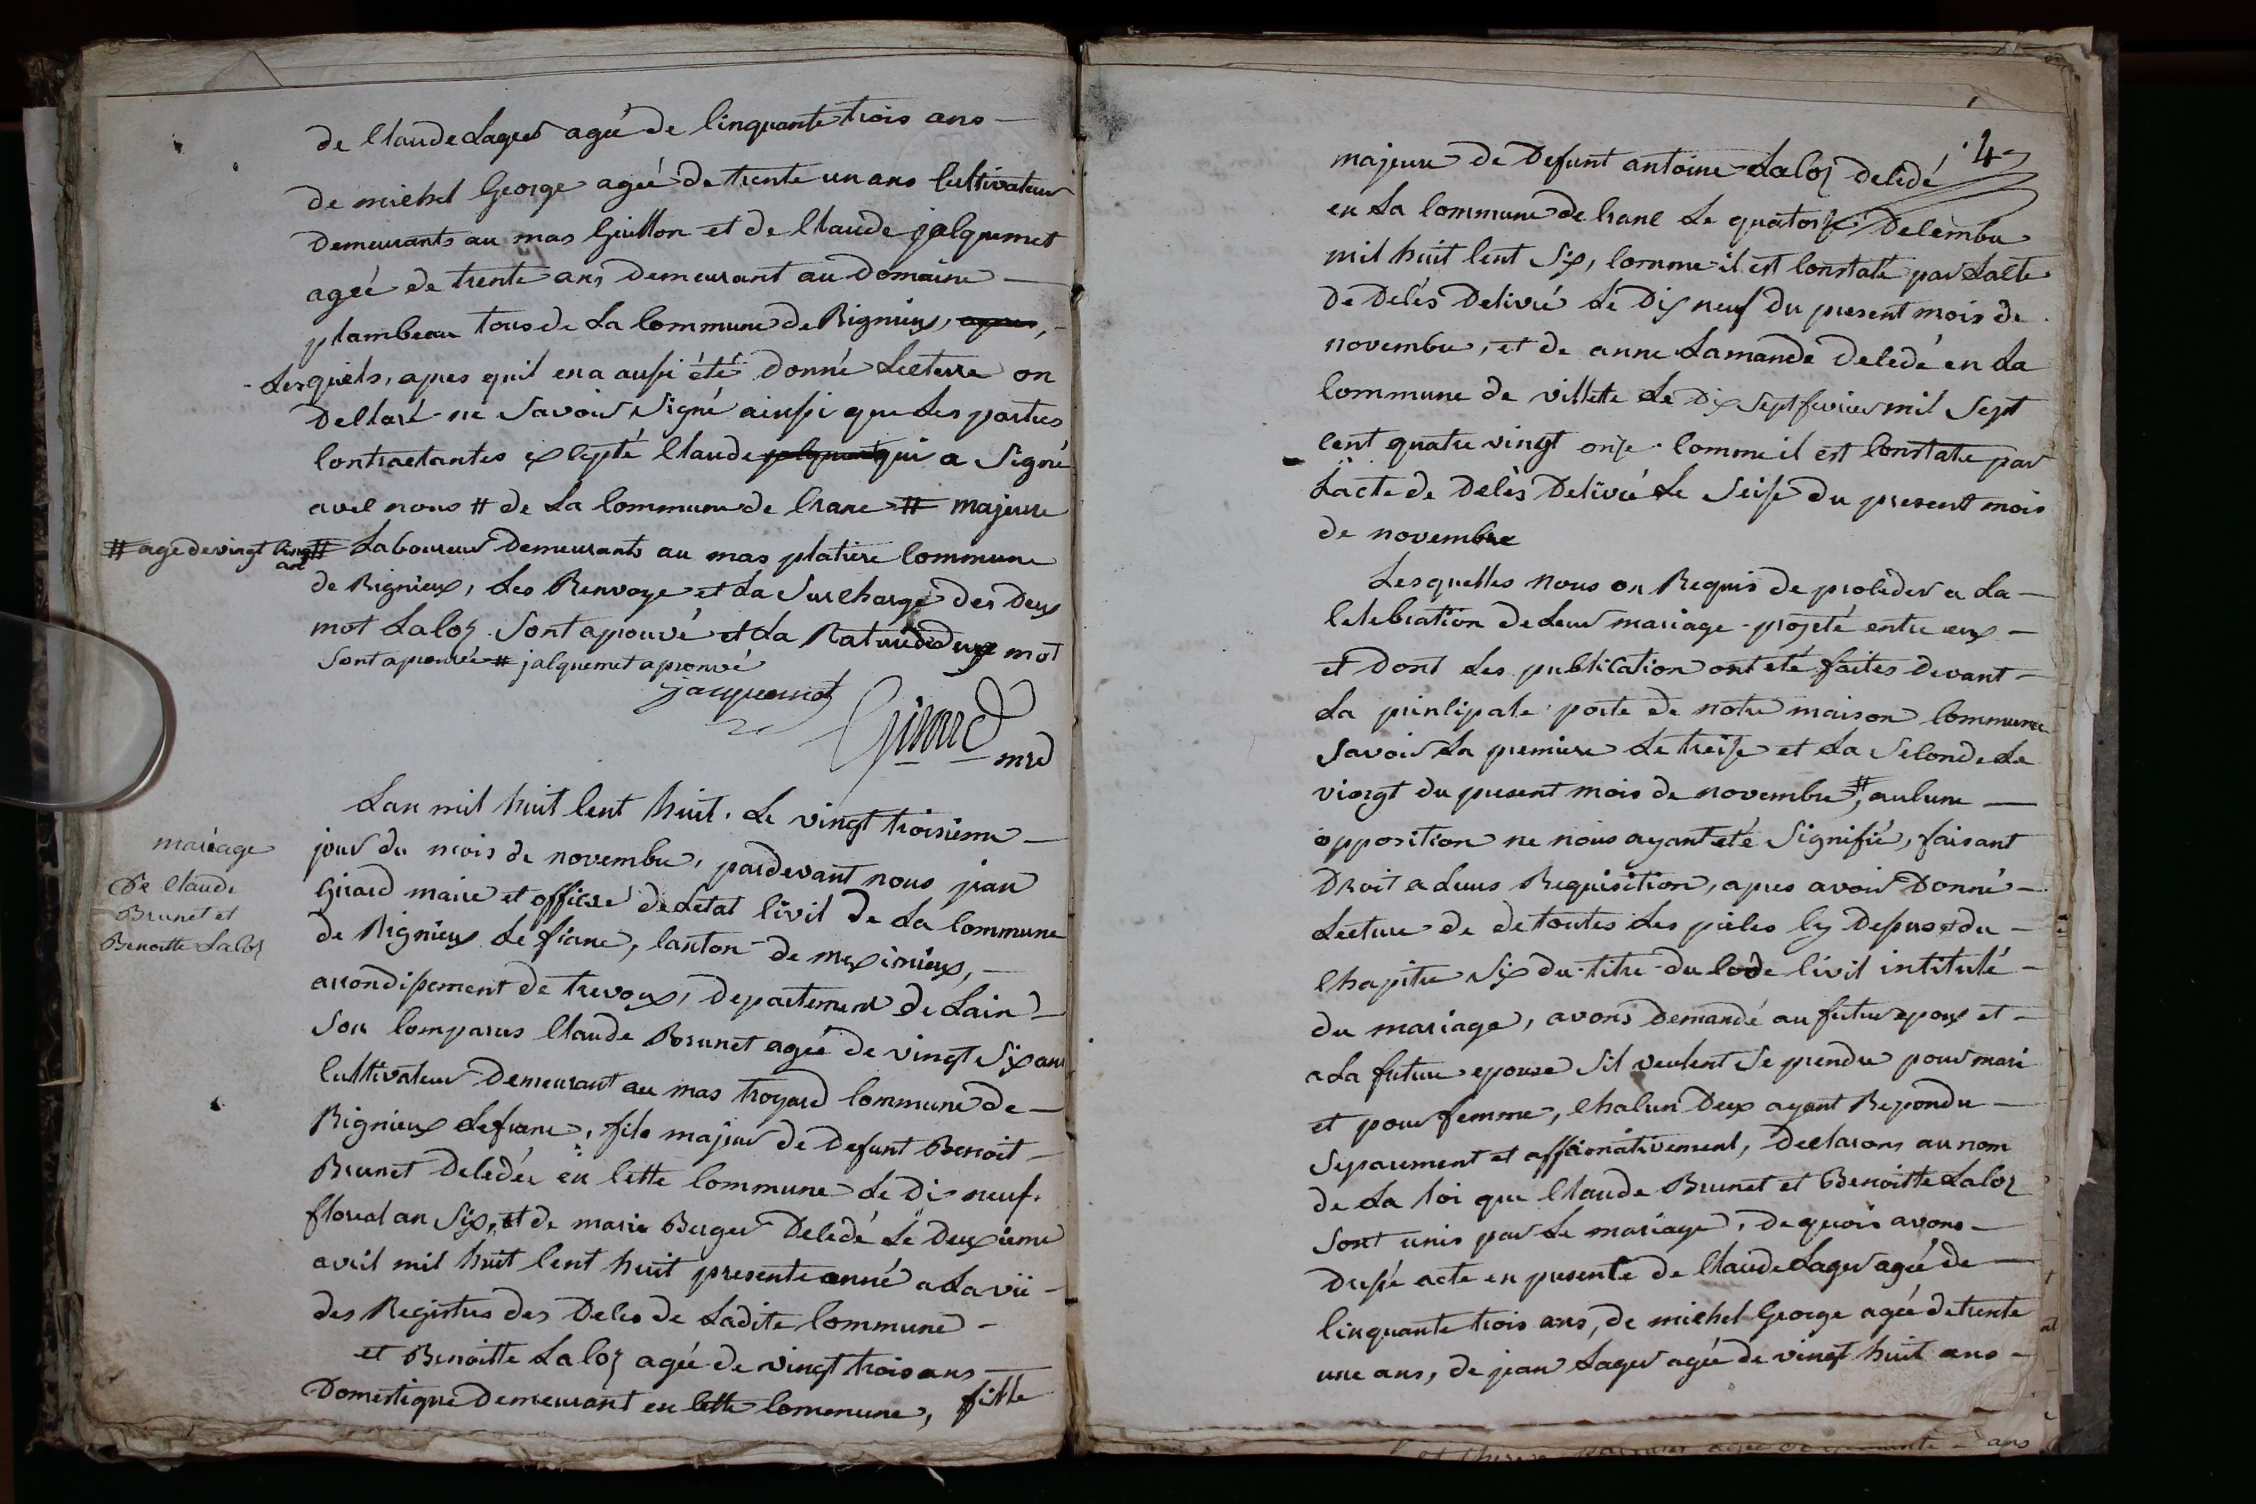 de Claude Lager agée de Cinquante trois ans —
de michel George ageé de trente un ans Cultivateur
Demeurants au mas Guillon et de Claude jalquemet
ageé de trente ans Demeurant au Domaine —
plambeau tous de La Commune de Rignieux, apres, -
Lesquels, apres quil en a aussi été Donné Lecteure on
Declaré ne Savoir Signé ainssi que Les parties
Contractantes excepté Claude jalquemet qui a Signé
avec nous # de La Commune de Crane # majeure
# age de vingt Cinq ans
# Laboureur Demeurants au mas platiere Commune
de Rignieux, Les Renvoye et La Surcharge des Deux
mot Laloz Sont aprouvé et La Raturé de deux mot
Sont aprouvée # jalquemet aprouvé
jacquemet
Girard
mre
mariage
De Claude
Brunet et
Benoitte Laloz
Lan mil huit Cent huit. Le vingt troisieme —
jour du mois de novembre, pardevant nous jean
Girard maire et officier de Letat Civil de La Commune
de Rignieux Le franc, Canton de meximieux, —
arrondissement de trevoux, Departement de Lain —
Son Comparus Claude Brunet ageé de vingt Six ans
Cultivateur Demeurant au mas troyard Commune de —
Rignieux Lefranc, fils majeur de Defunt Benoit —
Brunet Decedée en Cette Commune Le Di neuf
floreal an Six, et de marie Berger Decedé Le Deuxieme
avril mil huit Cent huit presente anné a La vüe —
des Registres des Deces de Ladite Commune —
et Benoitte Laloz ageé de vingt trois ans —
Domestique Demeurant en Cette Commune, fille
4
majeure de Defunt antoine Laloz Decedé
en La Commune de Crane Le quatorze Decembre
mil huit Cent Six, Comme il est Constaté par Lacte
De Decés Delivré Le Dix neuf du present mois de
novembre, et de anne Lamande Decedé en La
Commune de villette Le Dix Sept fevrier mil Sept
Cent quatre vingt onze Comme il est Constate par
Lacte de Decès Delivré Le Seize du present mois
de novembre
Lesquelles nous on Requis de proceder a La —
Celebration de Leur mariage projeté entre eux —
et Dont Les publication ont eté faites Devant —
La principale porte de notre maison Commune
Savoir La premiere Le treize et La Seconde Le
viengt du present mois de novembre #, aucune —
opposition ne nous ayant eté Signifié, faisant
Droit a Leurs Requisition, apres avoir Donné —
Lecture de de toutes Les pieces Cy Depus et du —
Chapitre Six du titre du Code Civil intitulé —
du mariage, avons Demandé au futur epoux et —
a La future epouse Sil veulent Se prendre pour mari
et pour femme, Chacun Deux ayant Repondu —
Separement et affirmativement, Declarons au nom
de La Loi que Claude Brunet et Benoitte Laloz
Sont unis par Le mariage, De quois avons —
Dressé acte en presente de Claude Lager agée de —
Cinquante trois ans, de michel George agée de trente
une ans, de jean Lager agée de vingt huit ans —